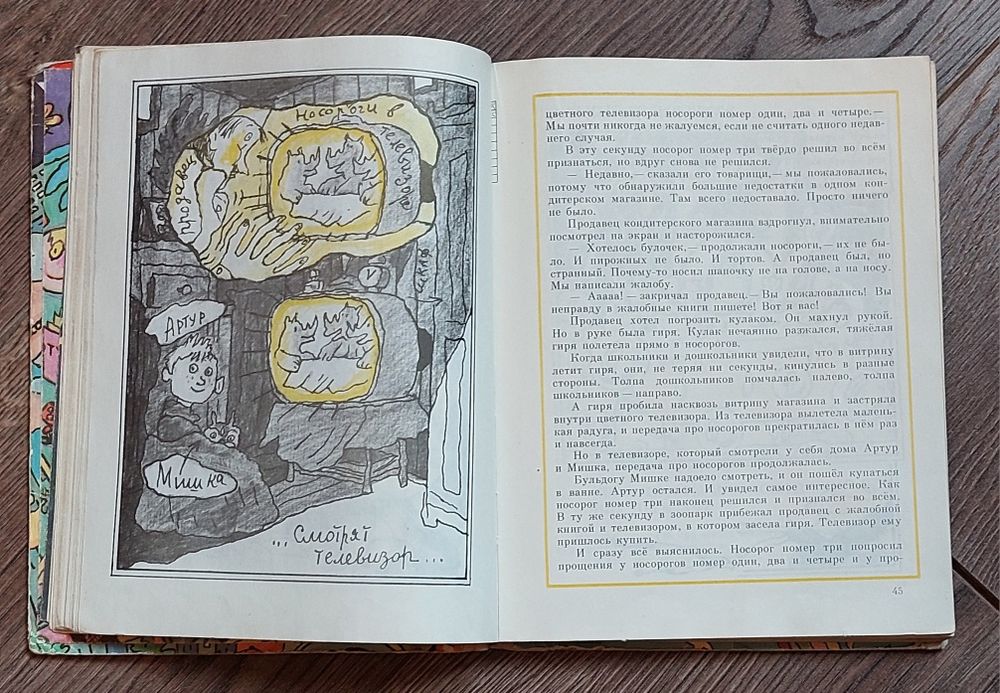 Носороги в
телевизоре
продавец
Артур
Мишка
...Смотрят
телевизор...
цветного телевизора носороги номер один, два и четыре.—
Мы почти никогда не жалуемся, если не считать одного недав-
него случая.
В эту секунду носорог номер три твёрдо решил во всём
признаться, но вдруг снова не решился.
— Недавно,— сказали его товарищи,— мы пожаловались,
потому что обнаружили большие недостатки в одном кон-
дитерском магазине. Там всего недоставало. Просто ничего
не было.
Продавец кондитерского магазина вздрогнул, внимательно
посмотрел на экран и насторожился.
— Хотелось булочек,— продолжали носороги,— их не бы-
ло. И пирожных не было. И тортов. А продавец был, но
странный. Почему-то носил шапочку не на голове, а на носу.
Мы написали жалобу.
— Ааааа! — закричал продавец.— Вы пожаловались! Вы
неправду в жалобные книги пишете! Вот я вас!
Продавец хотел погрозить кулаком. Он махнул рукой.
Но в руке была гиря. Кулак нечаянно разжался, тяжёлая
гиря полетела прямо в носорогов.
Когда школьники и дошкольники увидели, что в витрину
летит гиря, они, не теряя ни секунды, кинулись в разные
стороны. Толпа дошкольников помчалась налево, толпа
школьников — направо.
А гиря пробила насквозь витрину магазина и застряла
внутри цветного телевизора. Из телевизора вылетела малень-
кая радуга, и передача про носорогов прекратилась в нём раз
и навсегда.
Но в телевизоре, который смотрели у себя дома Артур
и Мишка, передача про носорогов продолжалась.
Бульдогу Мишке надоело смотреть, и он пошёл купаться
в ванне. Артур остался. И увидел самое интересное. Как
носорог номер три наконец решился и признался во всём.
В ту же секунду в зоопарк прибежал продавец с жалобной
книгой и телевизором, в котором засела гиря. Телевизор ему
пришлось купить.
И сразу всё выяснилось. Носорог номер три попросил
прощения у носорогов номер один, два и четыре и у про-
45